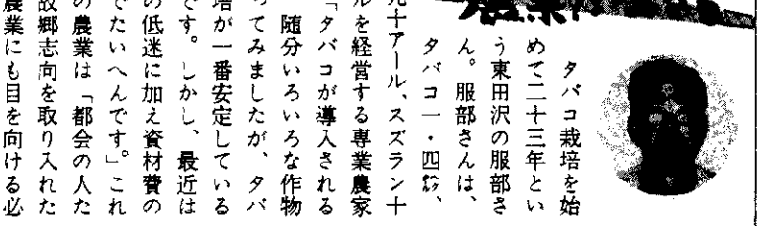 農業
タバコ栽培を始
めて二十三年とい
う東田沢の服部さ
ん。服部さんは、
タバコ一・四㌶、
九十アール、スズラン十
ルを経営する専業農家
「タバコが導入される
随分いろいろな作物
ってみましたが、タバ
培が一番安定している
です。しかし、最近は
の低迷に加え資材費の
でたいへんです」。これ
の農業は「都会の人た
故郷志向を取り入れた
農業にも目を向ける必